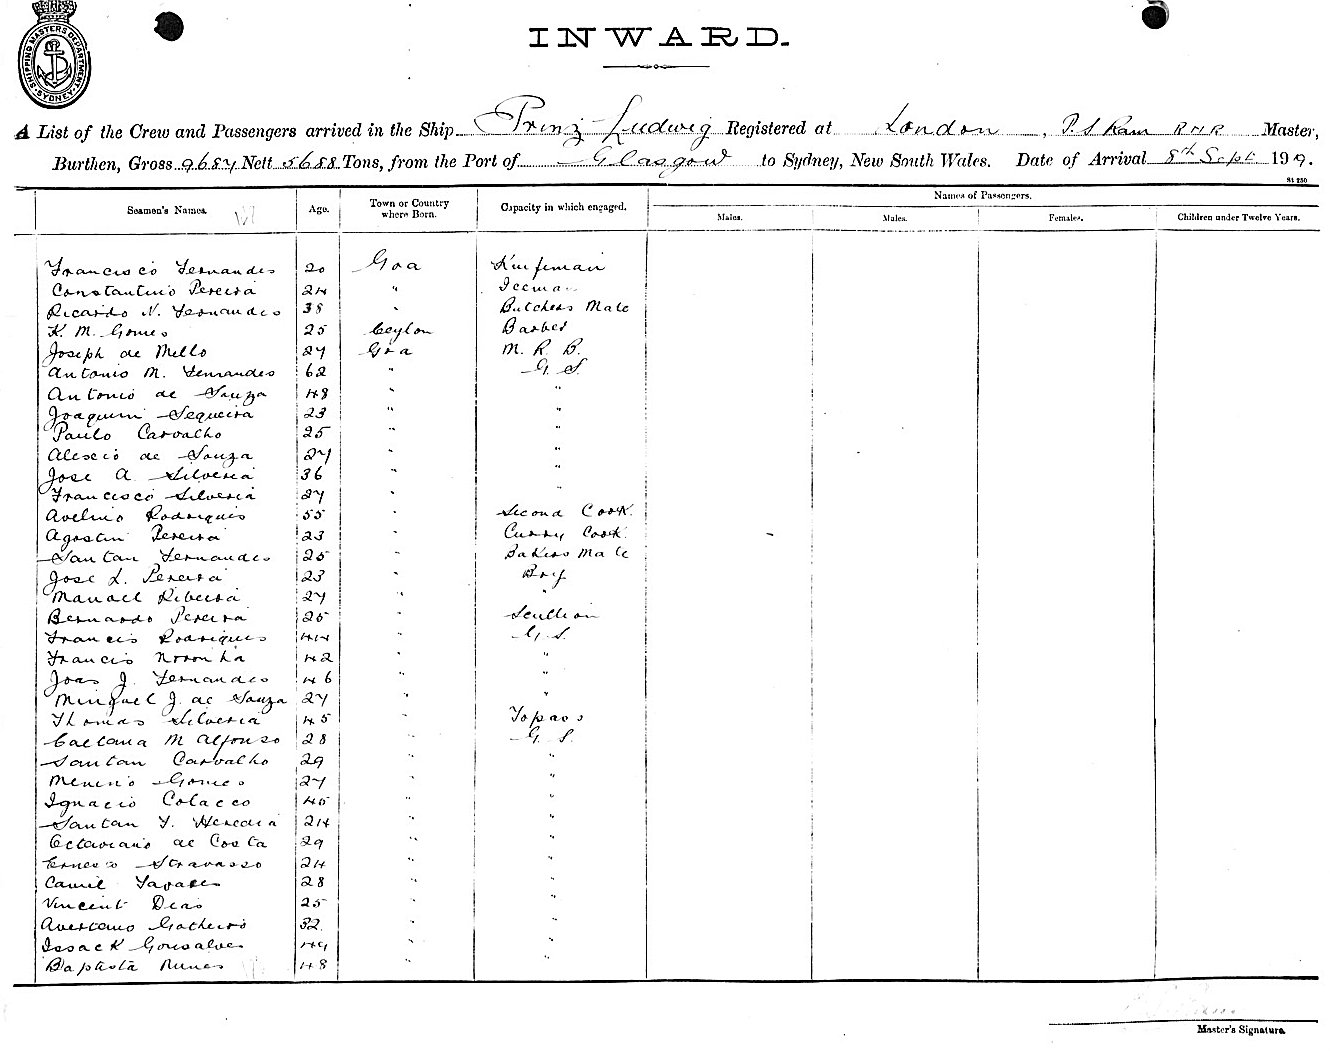 SHIPPING MASTERS DEPARTMENT SYDNEY
INWARD.
A List of the Crew and Passengers arrived in the Ship Prinz Ludwig Registered at London, P. S. Ram RNR Master,
Burthen, Gross 9687 Nett 5688 Tons, from the Port of Glasgow to Sydney, New South Wales. Date of Arrival 8th Sept 19 9.
St 250
Seamen's Names. Age. Town or Country where Born. Capacity in which engaged. Names of Passengers.
Males. Males. Females. Children under Twelve Years.
Francisco Fernandes 20 Goa
Constantino Pereira 24 " Iceman
Ricardo N. Fernandes 38 " Butchers Mate
K. M. Gomes 25 Ceylon Barber
Joseph de Mello 27 Goa M. R. B.
Antonio M. Fernandes 62 " G. S.
Antonio de Souza 48 " "
Joaquim Sequeira 23 " "
Paulo Carvalho 25 " "
Aleseio de Souza 27 " "
Jose A Silveria 36 " "
Francisco Silveria 27 " "
Avelino Rodriques 55 " Second Cook.
Agostin Pereira 23 " Curry Cook.
Santan Fernandes 25 " Bakers Mate
Jose L. Pereira 23 " Boy
Manael Ribeira 27 " "
Bernardo Pereira 25 " Scullion
Francis Rodriques 44 " G. S.
Francis Noronha 42 " "
Joao J. Fernandes 46 " "
Minguel J. de Souza 27 " "
Thomas Silveria 45 " Topass
Caetana M Alfonso 28 " G. S.
Santan Carvalho 29 " "
Menino Gomes 27 " "
Ignacio Colacco 45 " "
Santan F. Heredia 24 " "
Octaviano de Costa 29 " "
24 " "
Camil Tavares 28 " "
Vincent Dias 25 " "
32 " "
Issack Gonsalves 49 " "
Baptista Nunes 48 " "
Master's Signature.